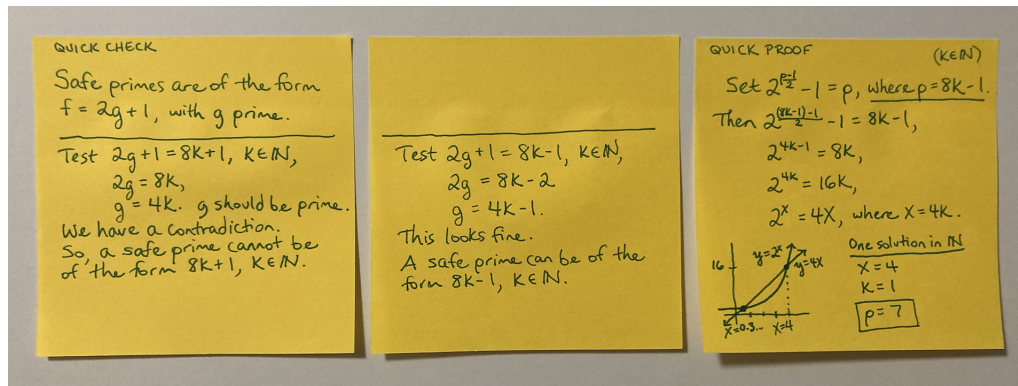 QUICK CHECK
Safe primes are of the form
f = 2g+1, with g prime.
Test 2g+1 = 8K+1, K∈ℕ,
2g = 8K,
g = 4K. g should be prime.
We have a contradiction.
So, a safe prime cannot be
of the form 8K+1, K∈ℕ.
Test 2g+1 = 8K-1, K∈ℕ,
2g = 8K-2
g = 4K-1.
This looks fine.
A safe prime can be of the
form 8K-1, K∈ℕ.
QUICK PROOF (K∈ℕ)
Set 2^((p-1)/2) -1 = p, where p = 8K-1.
Then 2^(((8K-1)-1)/2) -1 = 8K-1,
2^(4K-1) = 8K,
2^(4K) = 16K,
2^x = 4X, where X = 4K.
One solution in ℕ
X = 4
K = 1
p = 7
y=2^x
y=4x
16
X=0.3... X=4